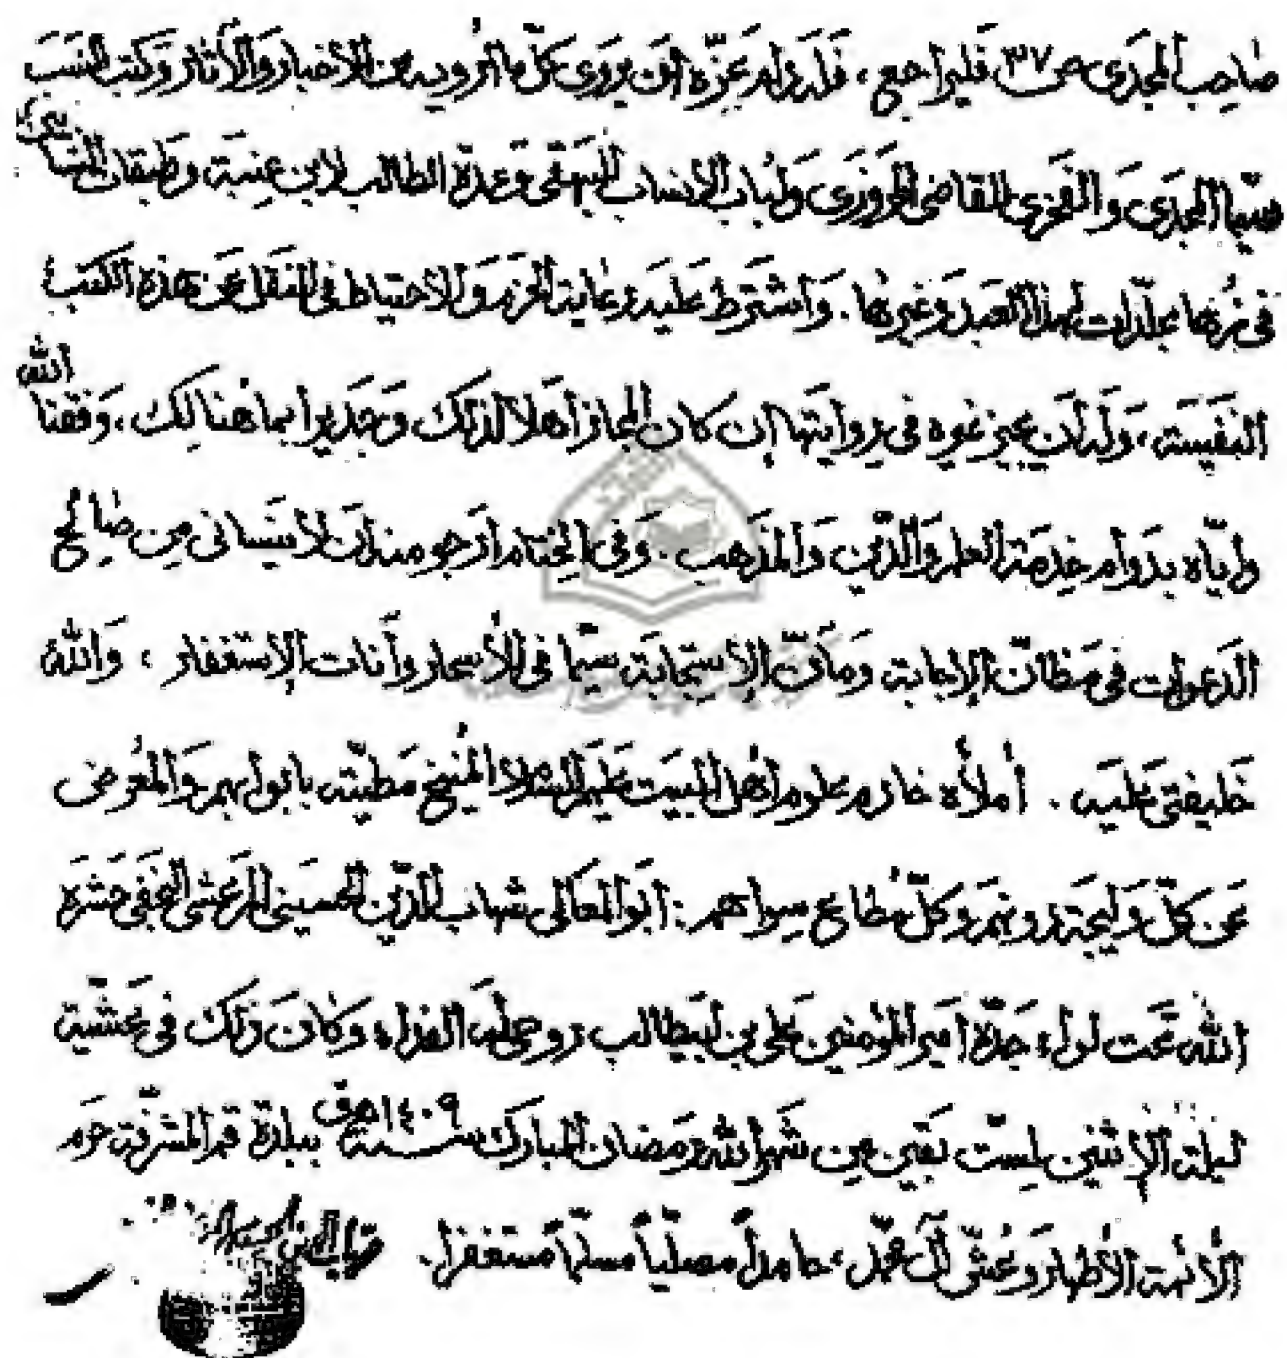 صاحب المجدي ص ٣٧ فليراجع، فله دام عزّه أن يروي كلّ ما أرويه من الأخبار والآثار وكتب النسب
سيّما المجدي والفخري للقاضي المروزي ولباب الأنساب للبيهقي وعمدة الطالب لابن عنبة وطبقات النسّابين
في مجلّدات لهذا العبد وغيرها. وأشترط عليه رعاية الحزم والاحتياط في النقل عن هذه الكتب
النفيسة، وله أن يجيز غيره في روايتها إن كان المجاز أهلا لذلك وجديرا بما هنالك، وفّقنا الله
وإيّاه بدوام خدمة العلم والدّين والمذهب. وفي الختام أرجو منه أن لا ينساني من صالح
الدعوات في مظانّ الإجابة ومآنّ الإستجابة سيّما في الأسحار وآنات الإستغفار، والله
خليفتي عليه. أملأه خادم علوم أهل البيت عليهم السلام المنيخ مطيّته بابوابهم والمعرض
عن كلّ وليجة دونهم وكلّ مطاع سواهم: ابو المعالي شهاب الدّين الحسيني المرعشي النجفي حشره
الله تحت لواء جدّه أمير المؤمنين علي بن أبيطالب روحي له الفداء وكان ذلك في عشيّة
ليلة الإثنين لستّ بقين من شهر الله رمضان المبارك سنة ١٤٠٩هـق ببلدة قم المشرّفة حرم
الأئمة الأطهار وعشّ آل محمّد، حامداً مصلّياً مسلّماً مستغفرا.